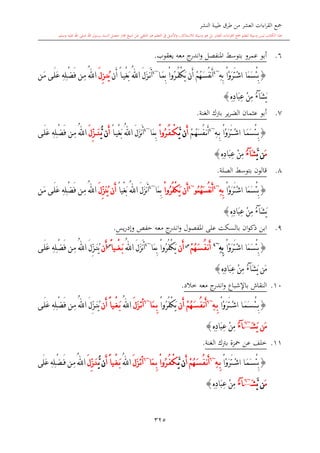 جمع القراءات العشر من طرق طيبة النشر
٦. أبو عمرو بتوسط المنفصل واندرج معه يعقوب.
﴿ بِئْسَمَا اشْتَرَوْا بِهِۦٓ أَنفُسَهُمْ أَن يَكْفُرُوا بِمَآ أَنزَلَ اللَّهُ بَغْيًا أَن يُنزِلَ اللَّهُ مِن فَضْلِهِ عَلَى مَن
يَشَآءُ مِنْ عِبَادِهِ ﴾
٧. أبو عثمان الضرير بترك الغنة.
﴿ بِئْسَمَا اشْتَرَوْا بِهِ أَنفُسَهُمْ أَن يَكْفُرُوا بِمَآ أَنزَلَ اللَّهُ بَغْيًا أَن يُنَزِّلَ اللَّهُ مِن فَضْلِهِ عَلَى
مَن يَشَآءُ مِنْ عِبَادِهِ ﴾
٨. قالون بتوسط الصلة.
﴿ بِئْسَمَا اشْتَرَوْا بِهِ أَنفُسَهُمُوٓ أَن يَكْفُرُوا بِمَآ أَنزَلَ اللَّهُ بَغْيًا أَن يُنَزِّلَ اللَّهُ مِن فَضْلِهِ عَلَى مَن
يَشَآءُ مِنْ عِبَادِهِ ﴾
٩. ابن ذكوان بالسكت على المفصول واندرج معه حفص وإدريس.
﴿ بِئْسَمَا اشْتَرَوْا بِهِ أَنفُسَهُمْ أَن يَكْفُرُوا بِمَآ أَنزَلَ اللَّهُ بَغْيًا أَن يُنَزِّلَ اللَّهُ مِن فَضْلِهِ عَلَى
مَن يَشَآءُ مِنْ عِبَادِهِ ﴾
١٠. النقاش بالإشباع واندرج معه خلاد.
﴿ بِئْسَمَا اشْتَرَوْا بِهِ أَنفُسَهُمْ أَن يَكْفُرُوا بِمَآ أَنزَلَ اللَّهُ بَغْيًا أَن يُنَزِّلَ اللَّهُ مِن فَضْلِهِ عَلَى
مَن يَشَآءُ مِنْ عِبَادِهِ ﴾
١١. خلف عن حمزة بترك الغنة.
﴿ بِئْسَمَا اشْتَرَوْا بِهِ أَنفُسَهُمْ أَن يَكْفُرُوا بِمَآ أَنزَلَ اللَّهُ بَغْيًا أَن يُنَزِّلَ اللَّهُ مِن فَضْلِهِ عَلَى
مَن يَشَآءُ مِنْ عِبَادِهِ ﴾
٣٢٥